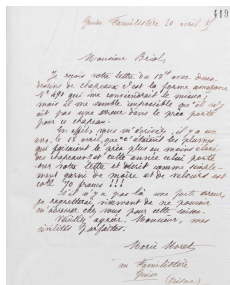 419
Guise Familistère 20 avril 8
Monsieur Briol,
Je reçois votre lettre du 18 avec deux
dessins de chapeaux. C'est la forme amazone
n° 491 qui me conviendrait le mieux;
mais il me semble impossible qu'il n'y
ait pas une erreur dans le prix porté
pour ce chapeau.
En effet, vous m'écriviez, il y a un
an, le 18 mai, que c'étaient les plumes
qui faisaient le prix plus ou moins élevé
des chapeaux et cette année celui porté
sur votre lettre et décrit comme
garni de moire et de velours est
coté 70 francs !!!
S'il n'y a pas là une forte erreur,
je regretterai vivement de ne pouvoir
m'adresser chez vous pour cette saison.
Veuillez agréer, Monsieur, mes
civilités parfaites.
Marie Moret
au Familistère
Guise
(Aisne)